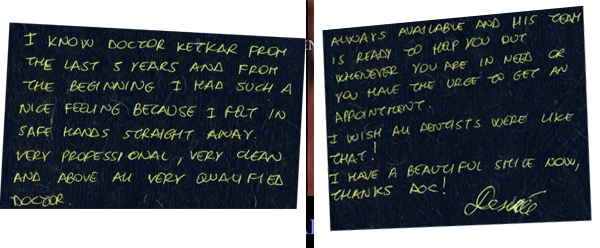 I KNOW DOCTOR KETKAR FROM
THE LAST 5 YEARS AND FROM
THE BEGINNING I HAD SUCH A
NICE FEELING BECAUSE I FELT IN
SAFE HANDS STRAIGHT AWAY.
VERY PROFESSIONAL, VERY CLEAN
AND ABOVE ALL VERY QUALIFIED
DOCTOR.
ALWAYS AVAILABLE AND HIS TEAM
IS READY TO HELP YOU OUT
WHENEVER YOU ARE IN NEED OR
YOU HAVE THE URGE TO GET AN
APPOINTMENT.
I WISH ALL DENTISTS WERE LIKE
THAT!
I HAVE A BEAUTIFUL SMILE NOW,
THANKS DOC!